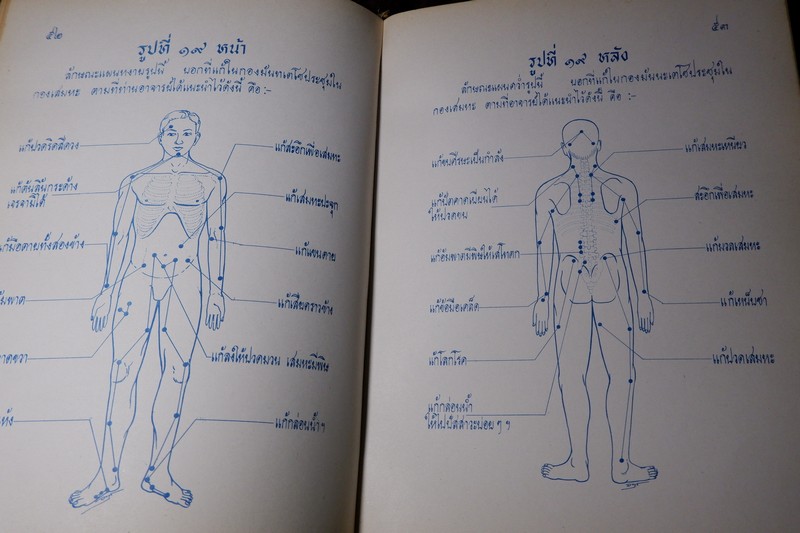 ๕๒
รูปที่ ๑๙ หน้า
ลักษณะแผนหงายรูปนี้ บอกที่แก้ในกองมันทเตโชประชุมใน
กองเสมหะ ตามที่ท่านอาจารย์ได้แนะนำไว้ดังนี้ คือ :-
แก้ปวดริดสีดวง
แก้สะอึกเพื่อเสมหะ
แก้ต้นลิ้นกระด้าง
เจรจามิได้
แก้เสมหะปะจุก
แก้มือตายทั้งสองข้าง
แก้แขนตาย
แก้เสียดราวข้าง
แก้ลงให้ปวดมวน เสมหะมีพิษ
แก้กล่อนน้ำฯ
๕๓
รูปที่ ๑๙ หลัง
ลักษณะแผนคว่ำรูปนี้ บอกที่แก้ในกองมันทะเตโชประชุมใน
กองเสมหะ ตามที่อาจารย์ได้แนะนำไว้ดังนี้ คือ :-
แก้เสมหะเหนียว
สะอึกเพื่อเสมหะ
ให้ปวดอน
แก้มวลเสมหะ
แก้ข้อมือเคล็ด
แก้เหน็บชา
แก้ปวดเสมหะ
แก้กล่อนน้ำ
ให้ไปปัสสาวะบ่อยๆ ฯ